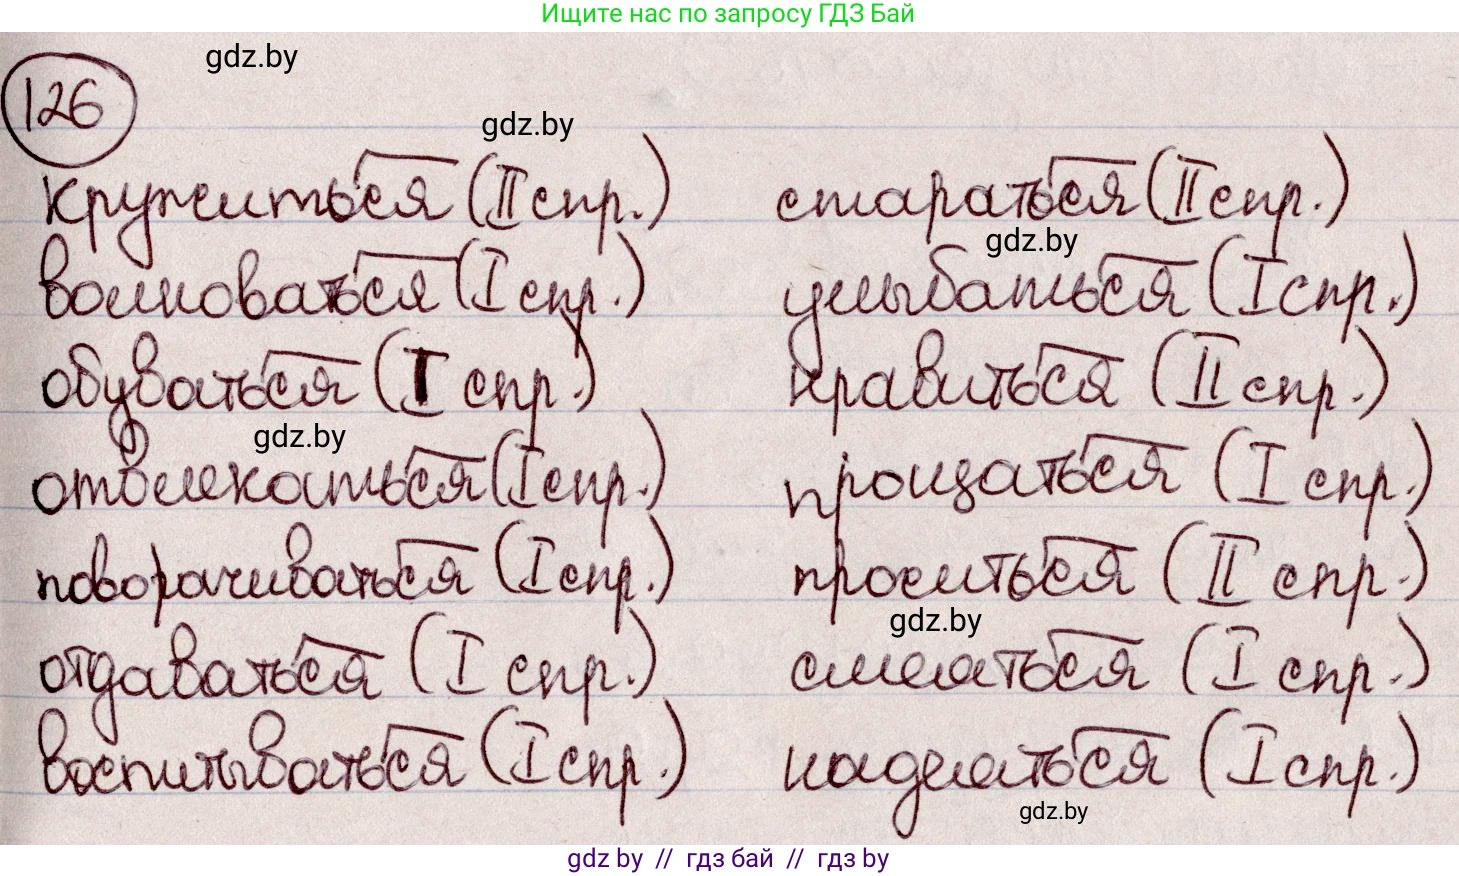 Ищите нас по запросу ГДЗ Бай
gdz.by
126
gdz.by
кружиться (II спр.) стараться (II спр.)
gdz.by
волноваться (I спр.) улыбаться (I спр.)
обуваться (I спр.) нравиться (II спр.)
gdz.by
отвлекаться (I спр.) прощаться (I спр.)
поворачиваться (I спр.) проситься (II спр.)
gdz.by
отдаваться (I спр.) смеяться (I спр.)
воспитываться (I спр.) надеяться (I спр.)
gdz.by
gdz by // гдз бай // гдз by